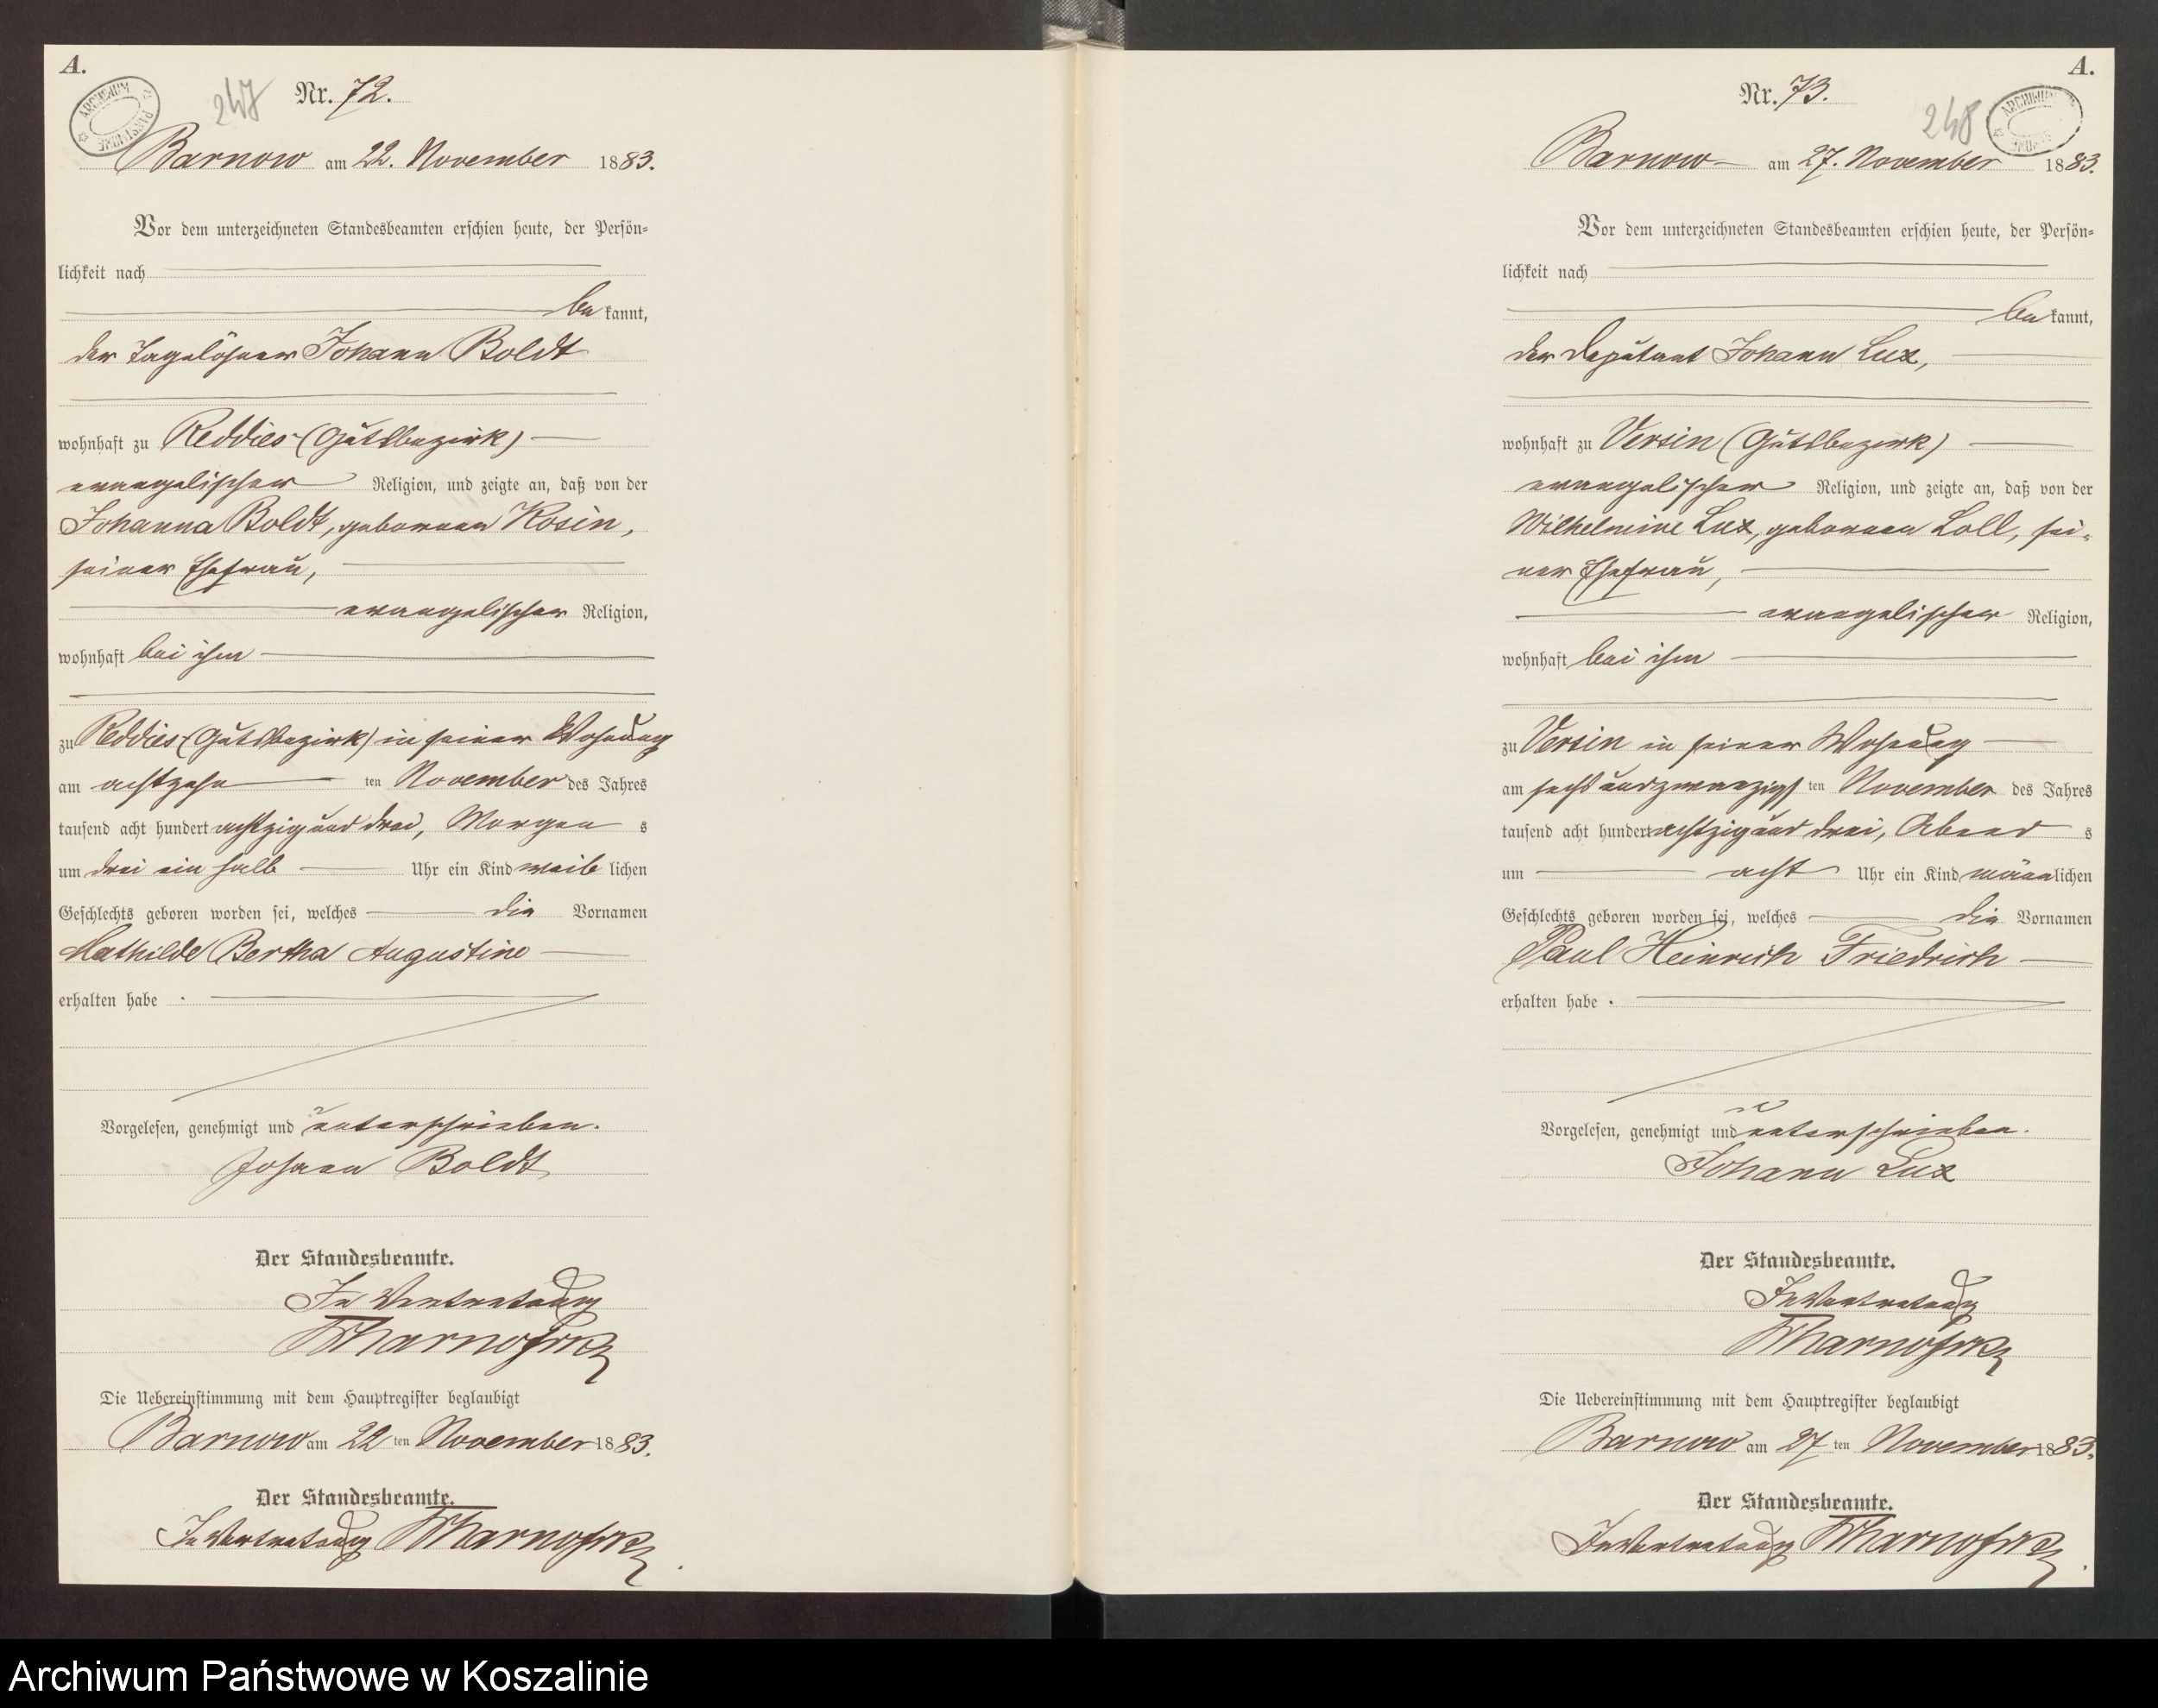 A.
ARCHIWUM PAŃSTWOWE
247
Nr. 72.
Barnow am 22. November 1883.
Vor dem unterzeichneten Standesbeamten erschien heute, der Persön=
lichkeit nach
be kannt,
der Tagelöhner Johann Boldt
wohnhaft zu Reddies (Gutsbezirk)
evangelischer Religion, und zeigte an, daß von der
Johanna Boldt, geborenen Kosin,
seiner Ehefrau,
evangelischer Religion,
wohnhaft bei ihm
zu Reddies (Gutsbezirk) in seiner Wohnung
am achtzehn ten November des Jahres
tausend acht hundert achtzig und drei, Morgen s
um drei ein halb Uhr ein Kind weib lichen
Geschlechts geboren worden sei, welches die Vornamen
Mathilde Bertha Augustine
erhalten habe.
Vorgelesen, genehmigt und unterschrieben.
Johann Boldt
Der Standesbeamte.
In Vertretung
Die Uebereinstimmung mit dem Hauptregister beglaubigt
Barnow am 22 ten November 1883.
Der Standesbeamte.
In Vertretung
A.
ARCHIWUM
248
Nr. 73.
Barnow am 27. November 1883.
Vor dem unterzeichneten Standesbeamten erschien heute, der Persön=
lichkeit nach
be kannt,
der Deputant Johann Lux,
wohnhaft zu Versin (Gutsbezirk)
evangelischer Religion, und zeigte an, daß von der
Wilhelmine Lux, geborenen Loll, sei=
ner Ehefrau,
evangelischer Religion,
wohnhaft bei ihm
zu Versin in seiner Wohnung
am sechs und zwanzigs ten November des Jahres
tausend acht hundert achtzig und drei, Abend s
um acht Uhr ein Kind männlichen
Geschlechts geboren worden sei, welches die Vornamen
Paul Heinrich Friedrich
erhalten habe.
Vorgelesen, genehmigt und unterschrieben.
Johann Lux
Der Standesbeamte.
In Vertretung
Die Uebereinstimmung mit dem Hauptregister beglaubigt
Barnow am 27 ten November 1883.
Der Standesbeamte.
In Vertretung
Archiwum Państwowe w Koszalinie